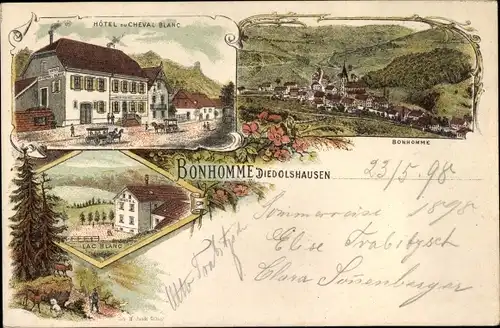 HÔTEL DU CHEVAL BLANC
BONHOMME
BONHOMME DIEDOLSHAUSEN
23/5.98
LAC BLANC
Sommerreise 1898
Otto Trabitzsch
Else Trabitzsch
Clara Sonnenberger